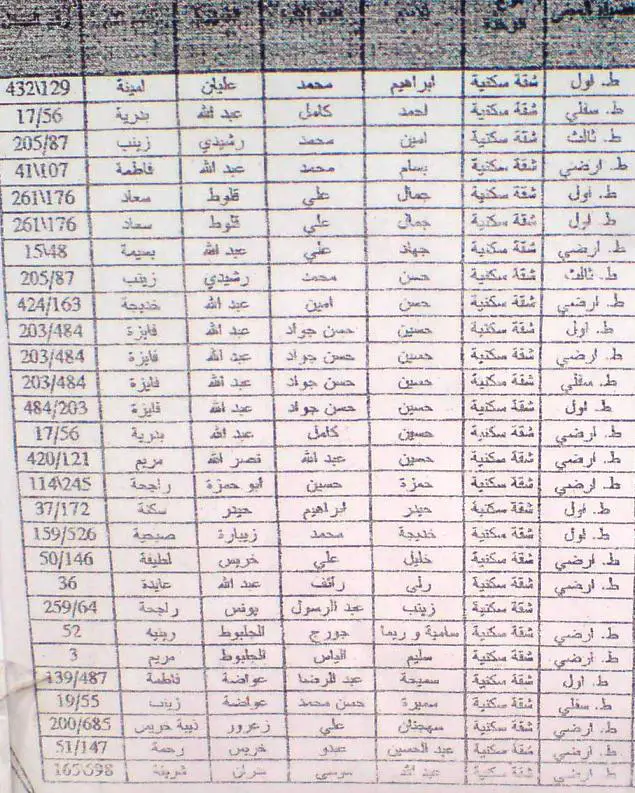 ط. اول شقة سكنية ابراهيم محمد عليان امينة 432\129
ط. سفلي شقة سكنية احمد كامل عبد الله بدرية 17/56
ط. ثالث شقة سكنية امين محمد رشيدي زينب 205/87
ط. ارضي شقة سكنية بسام محمد عبد الله فاطمة 41\107
ط. اول شقة سكنية جمال علي قلوط سعاد 261\176
ط. اول شقة سكنية جمال علي قلوط سعاد 261\176
ط. ارضي شقة سكنية جهاد علي عبد الله بسيمة 15\48
ط. ثالث شقة سكنية حسن محمد رشيدي زينب 205/87
ط. ارضي شقة سكنية حسن امين عبد الله خديجة 424/163
ط. اول شقة سكنية حسين حسن جواد عبد الله فايزة 203/484
ط. ارضي شقة سكنية حسين حسن جواد عبد الله فايزة 203/484
ط. سفلي شقة سكنية حسين حسن جواد عبد الله فايزة 203/484
ط. اول شقة سكنية حسين حسن جواد عبد الله فايزة 484/203
ط. ارضي شقة سكنية حسين كامل عبد الله بدرية 17/56
ط. ارضي شقة سكنية حسين عبد الله نصر الله مريم 420/121
ط. ارضي شقة سكنية حمزة حسين ابو حمزة راجحة 114\245
ط. اول شقة سكنية حيدر ابراهيم حيدر سكنة 37/172
ط. اول شقة سكنية خديجة محمد زيبارة صبحية 159/526
ط. ارضي شقة سكنية خليل علي خريس لطيفة 50/146
ط. ارضي شقة سكنية رلى رائف عبد الله عايدة 36
شقة سكنية زينب عبد الرسول يونس راجحة 259/64
ط. ارضي شقة سكنية سامية و ريما جورج الجلبوط 52
ط. ارضي شقة سكنية سليم الياس الجلبوط مريم 3
ط. اول شقة سكنية سميحة عبد الرضا عواضة فاطمة 139/487
ط. سفلي شقة سكنية سميرة حسن محمد عواضة زينب 19/55
ط. ارضي شقة سكنية سهجنان علي زعرور نبية خريس 200/685
ط. ارضي شقة سكنية عبد الحسين عبدو خريس رحمة 51/147
ط. ارضي شقة سكنية عبد الله موسى شريفة